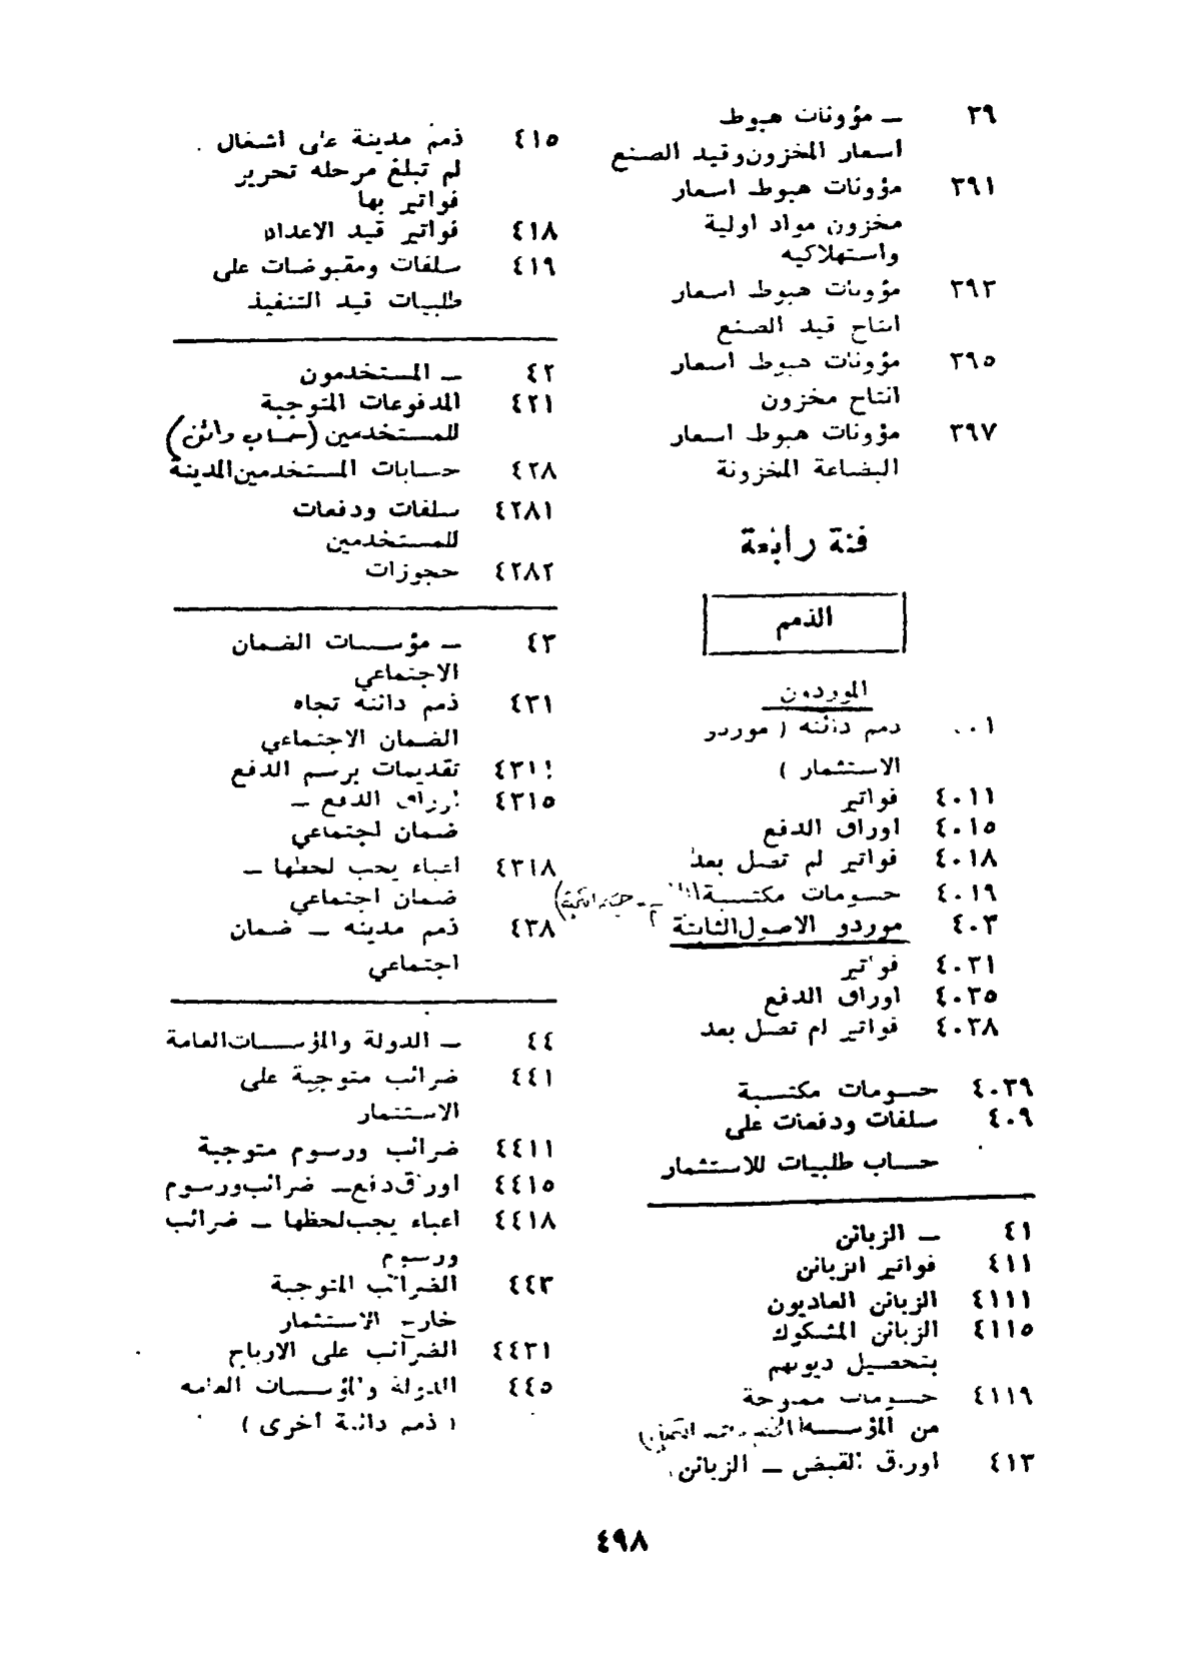 ٣٩ — مؤونات هبوط
اسعار المخزون وقيد الصنع
٣٩١ مؤونات هبوط اسعار
مخزون مواد اولية
واستهلاكيه
٣٩٣ مؤونات هبوط اسعار
انتاج قيد الصنع
٣٩٥ مؤونات هبوط اسعار
انتاج مخزون
٣٩٧ مؤونات هبوط اسعار
البضاعة المخزونة
فئة رابعة
الذمم
الموردون
ذمم دائنه ( موردو
الاستثمار )
٤٠١١ فواتير
٤٠١٥ اوراق الدفع
٤٠١٨ فواتير لم تصل بعد
٤٠١٩ حسومات مكتسبة
٤٠٣ موردو الاصول الثابتة
٤٠٣١ فواتير
٤٠٣٥ اوراق الدفع
٤٠٣٨ فواتير لم تصل بعد
٤٠٣٩ حسومات مكتسبة
٤٠٩ سلفات ودفعات على
حساب طلبيات للاستثمار
٤١ — الزبائن
٤١١ فواتير الزبائن
٤١١١ الزبائن العاديون
٤١١٥ الزبائن المشكوك
بتحصيل ديونهم
٤١١٩ حسومات ممنوحة
من المؤسسة
٤١٣ اوراق القبض — الزبائن
٤١٥ ذمم مدينة على اشغال
لم تبلغ مرحله تحرير
فواتير بها
٤١٨ فواتير قيد الاعداد
٤١٩ سلفات ومقبوضات على
طلبيات قيد التنفيذ
٤٢ — المستخدمون
٤٢١ المدفوعات المتوجبة
للمستخدمين (حساب دائن)
٤٢٨ حسابات المستخدمين المدينة
٤٢٨١ سلفات ودفعات
للمستخدمين
٤٢٨٢ حجوزات
٤٣ — مؤسسات الضمان
الاجتماعي
٤٣١ ذمم دائنه تجاه
الضمان الاجتماعي
٤٣١١ تقديمات برسم الدفع
٤٣١٥ اوراق الدفع —
ضمان اجتماعي
٤٣١٨ اعباء يجب لحظها —
ضمان اجتماعي
٤٣٨ ذمم مدينه — ضمان
اجتماعي
٤٤ — الدولة والمؤسسات العامة
٤٤١ ضرائب متوجبة على
الاستثمار
٤٤١١ ضرائب ورسوم متوجبة
٤٤١٥ اوراق دفع — ضرائب ورسوم
٤٤١٨ اعباء يجب لحظها — ضرائب
ورسوم
٤٤٣ الضرائب المتوجبة
خارج الاستثمار
٤٤٣١ الضرائب على الارباح
٤٤٥ الدولة والمؤسسات العامه
( ذمم دائنة أخرى )
٤٩٨